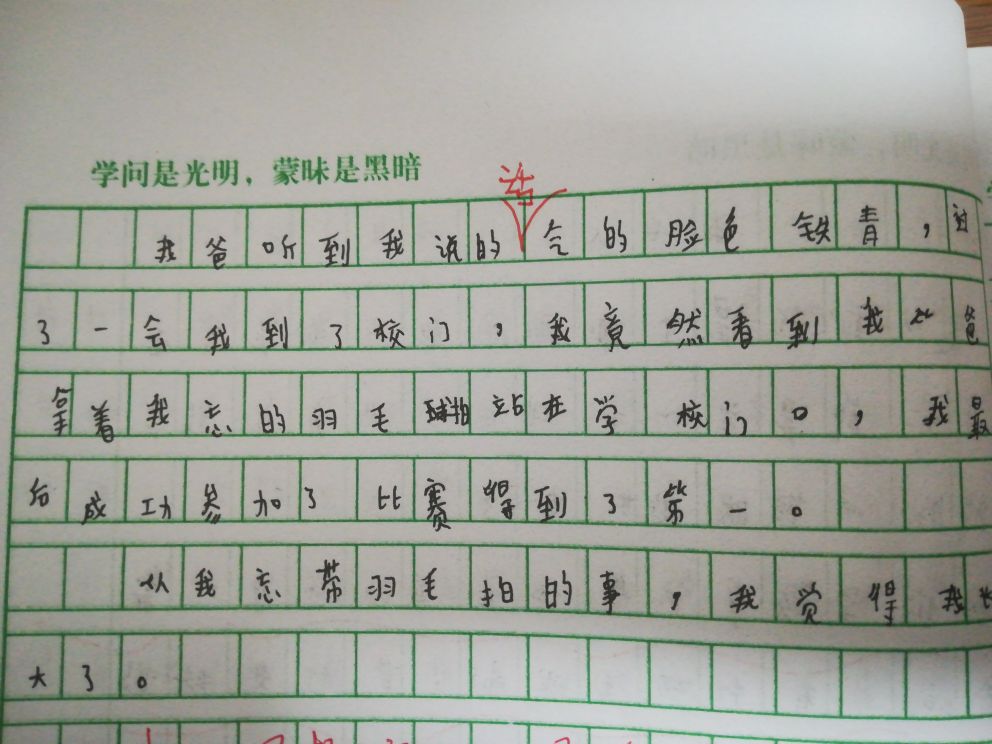 学问是光明，蒙昧是黑暗
话
我爸听到我说的气的脸色铁青，过
了一会我到了校门，我竟然看到我爸爸
拿着我忘的羽毛球拍站在学校门口，我最
后成功参加了比赛得到了第一。
从我忘带羽毛拍的事，我觉得我长
大了。